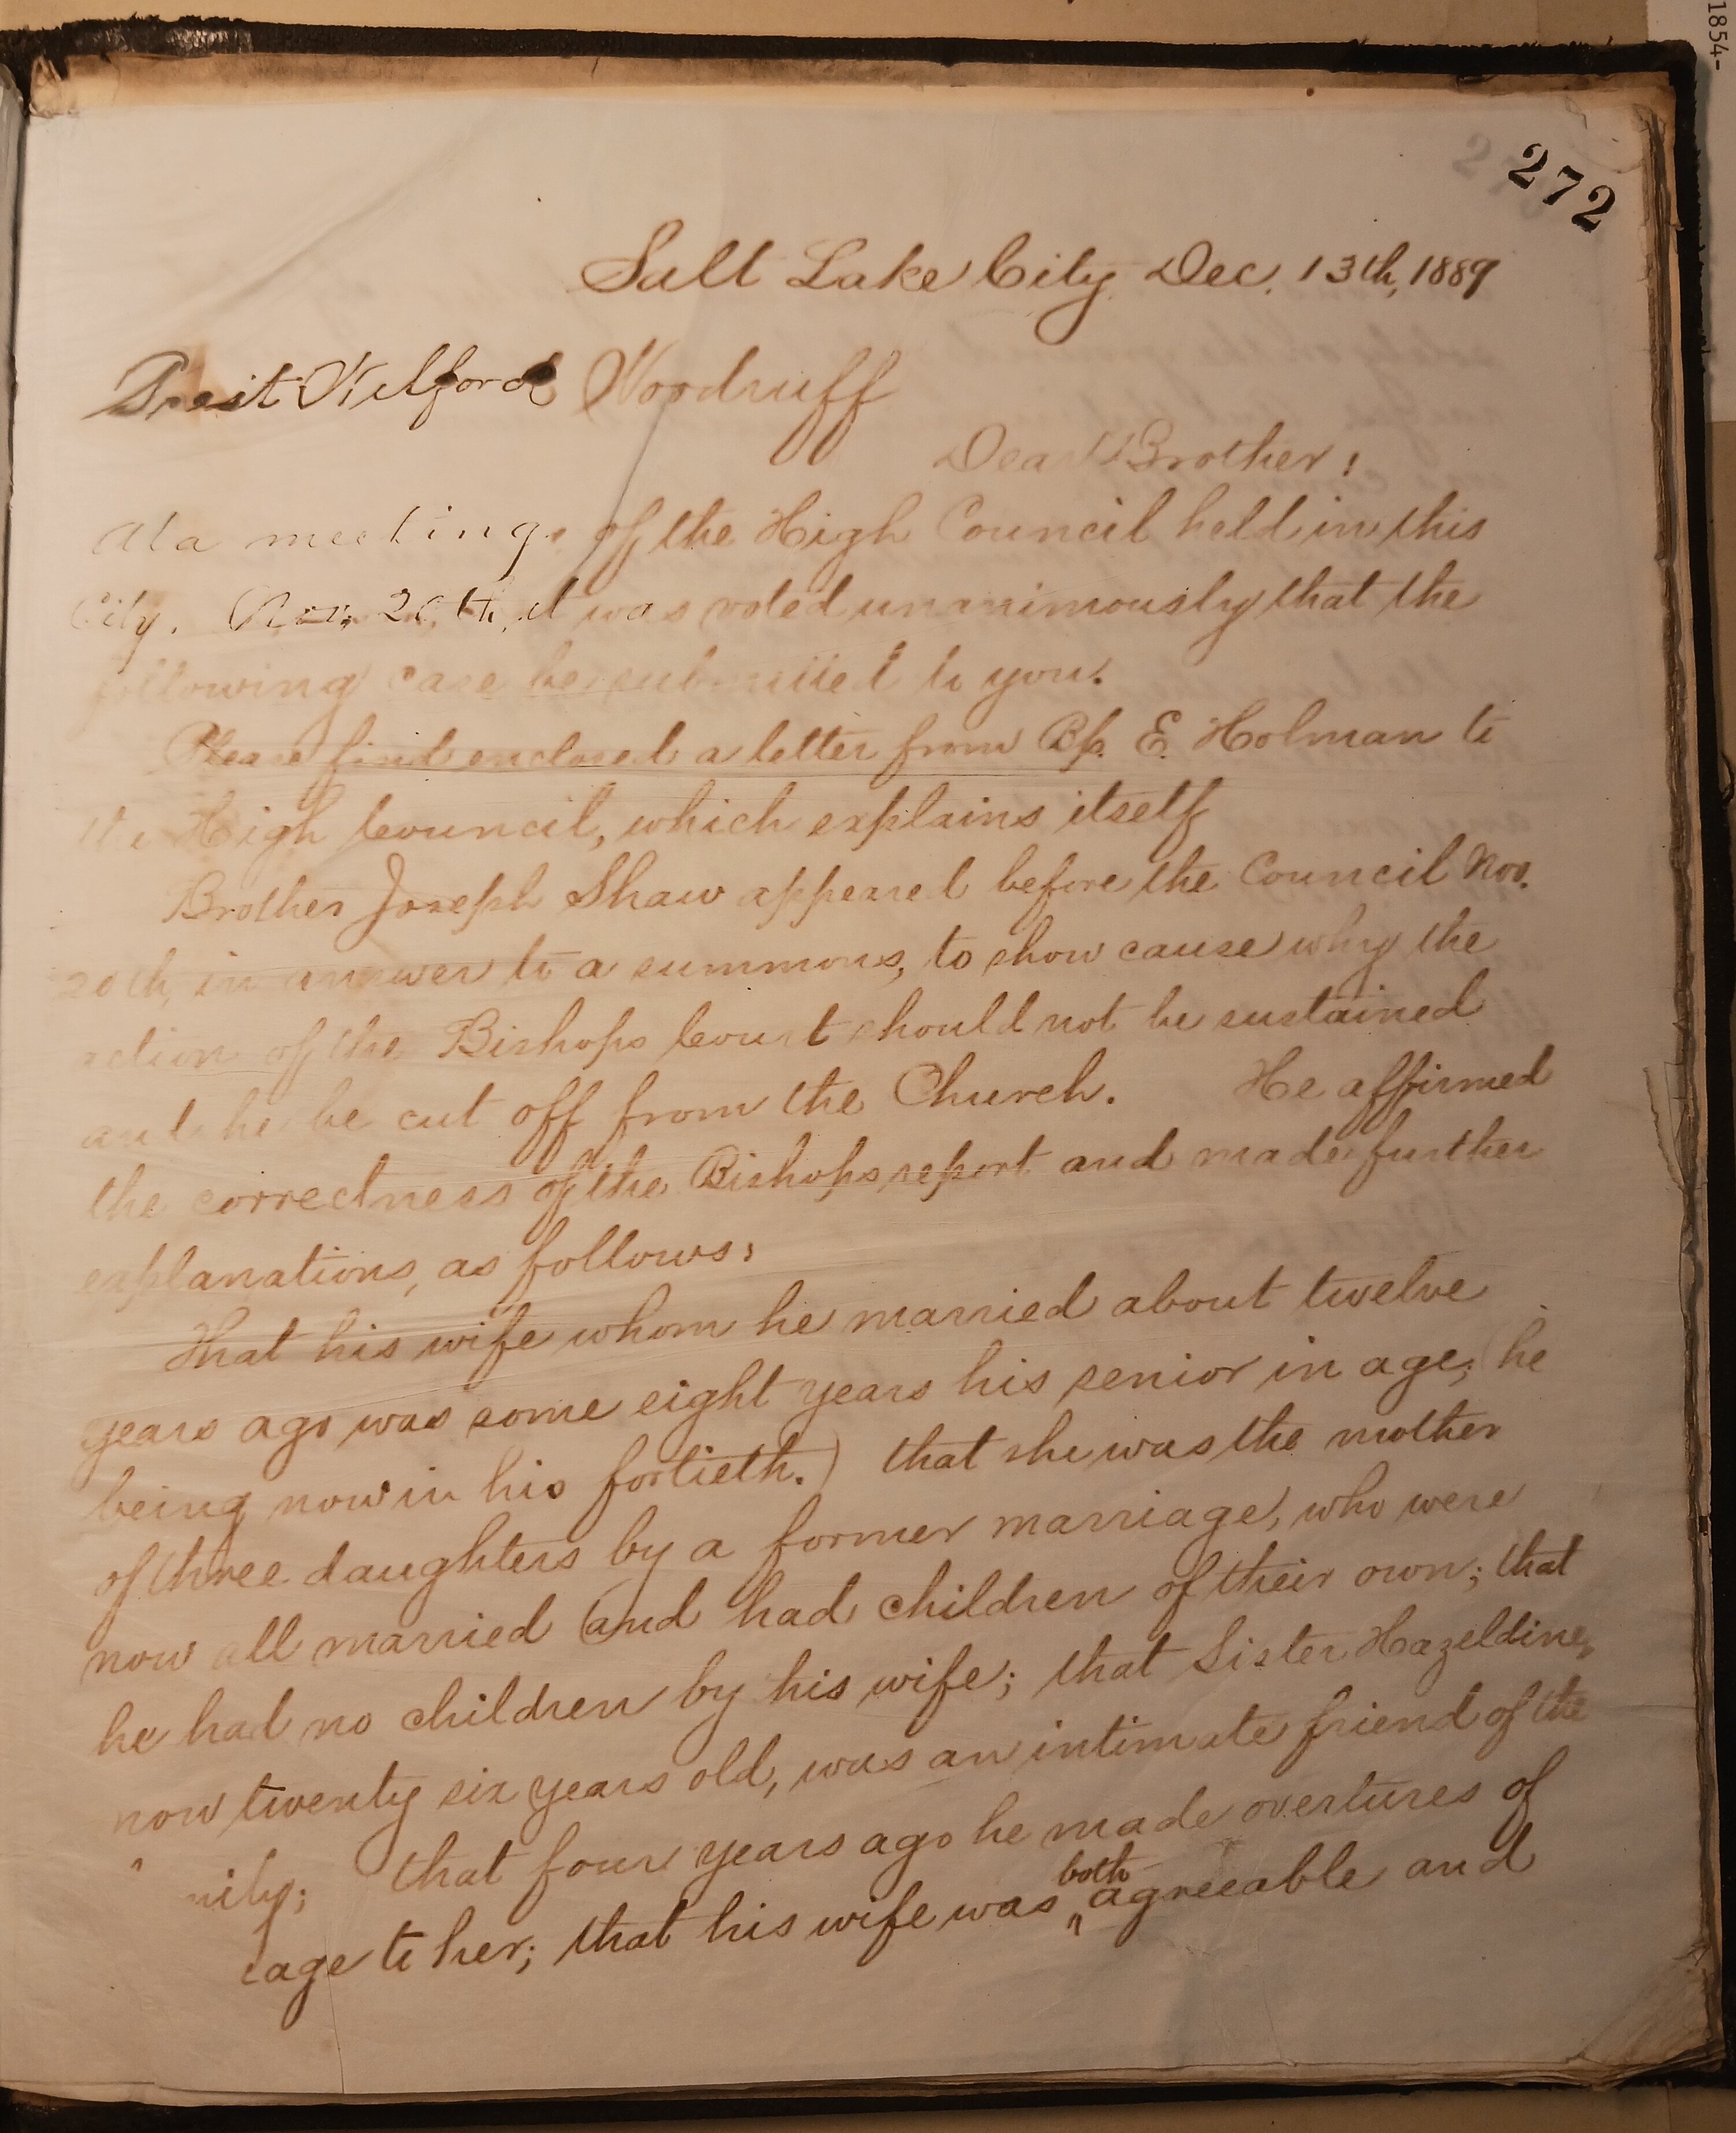 1854-
272
Salt Lake City, Dec. 13th, 1889
Prest Wilford Woodruff
Dear Brother:
At a meeting of the High Council held in this
City, Nov. 20th, it was voted unanimously that the
following case be submitted to you.
Please find enclosed a letter from Bp. E. Holman to
the High Council, which explains itself
Brother Joseph Shaw appeared before the Council Nov.
20th, in answer to a summons, to show cause why the
action of the Bishops Court should not be sustained
and he be cut off from the Church. He affirmed
the correctness of the Bishops report and made further
explanations, as follows:
That his wife whom he married about twelve
years ago was some eight years his senior in age, (he
being now in his fortieth.) that she was the mother
of three daughters by a former marriage, who were
now all married and had children of their own; that
he had no children by his wife; that Sister Hazeldine,
now twenty six years old, was an intimate friend of the
mily; that four years ago he made overtures of
iage to her; that his wife was both agreeable and